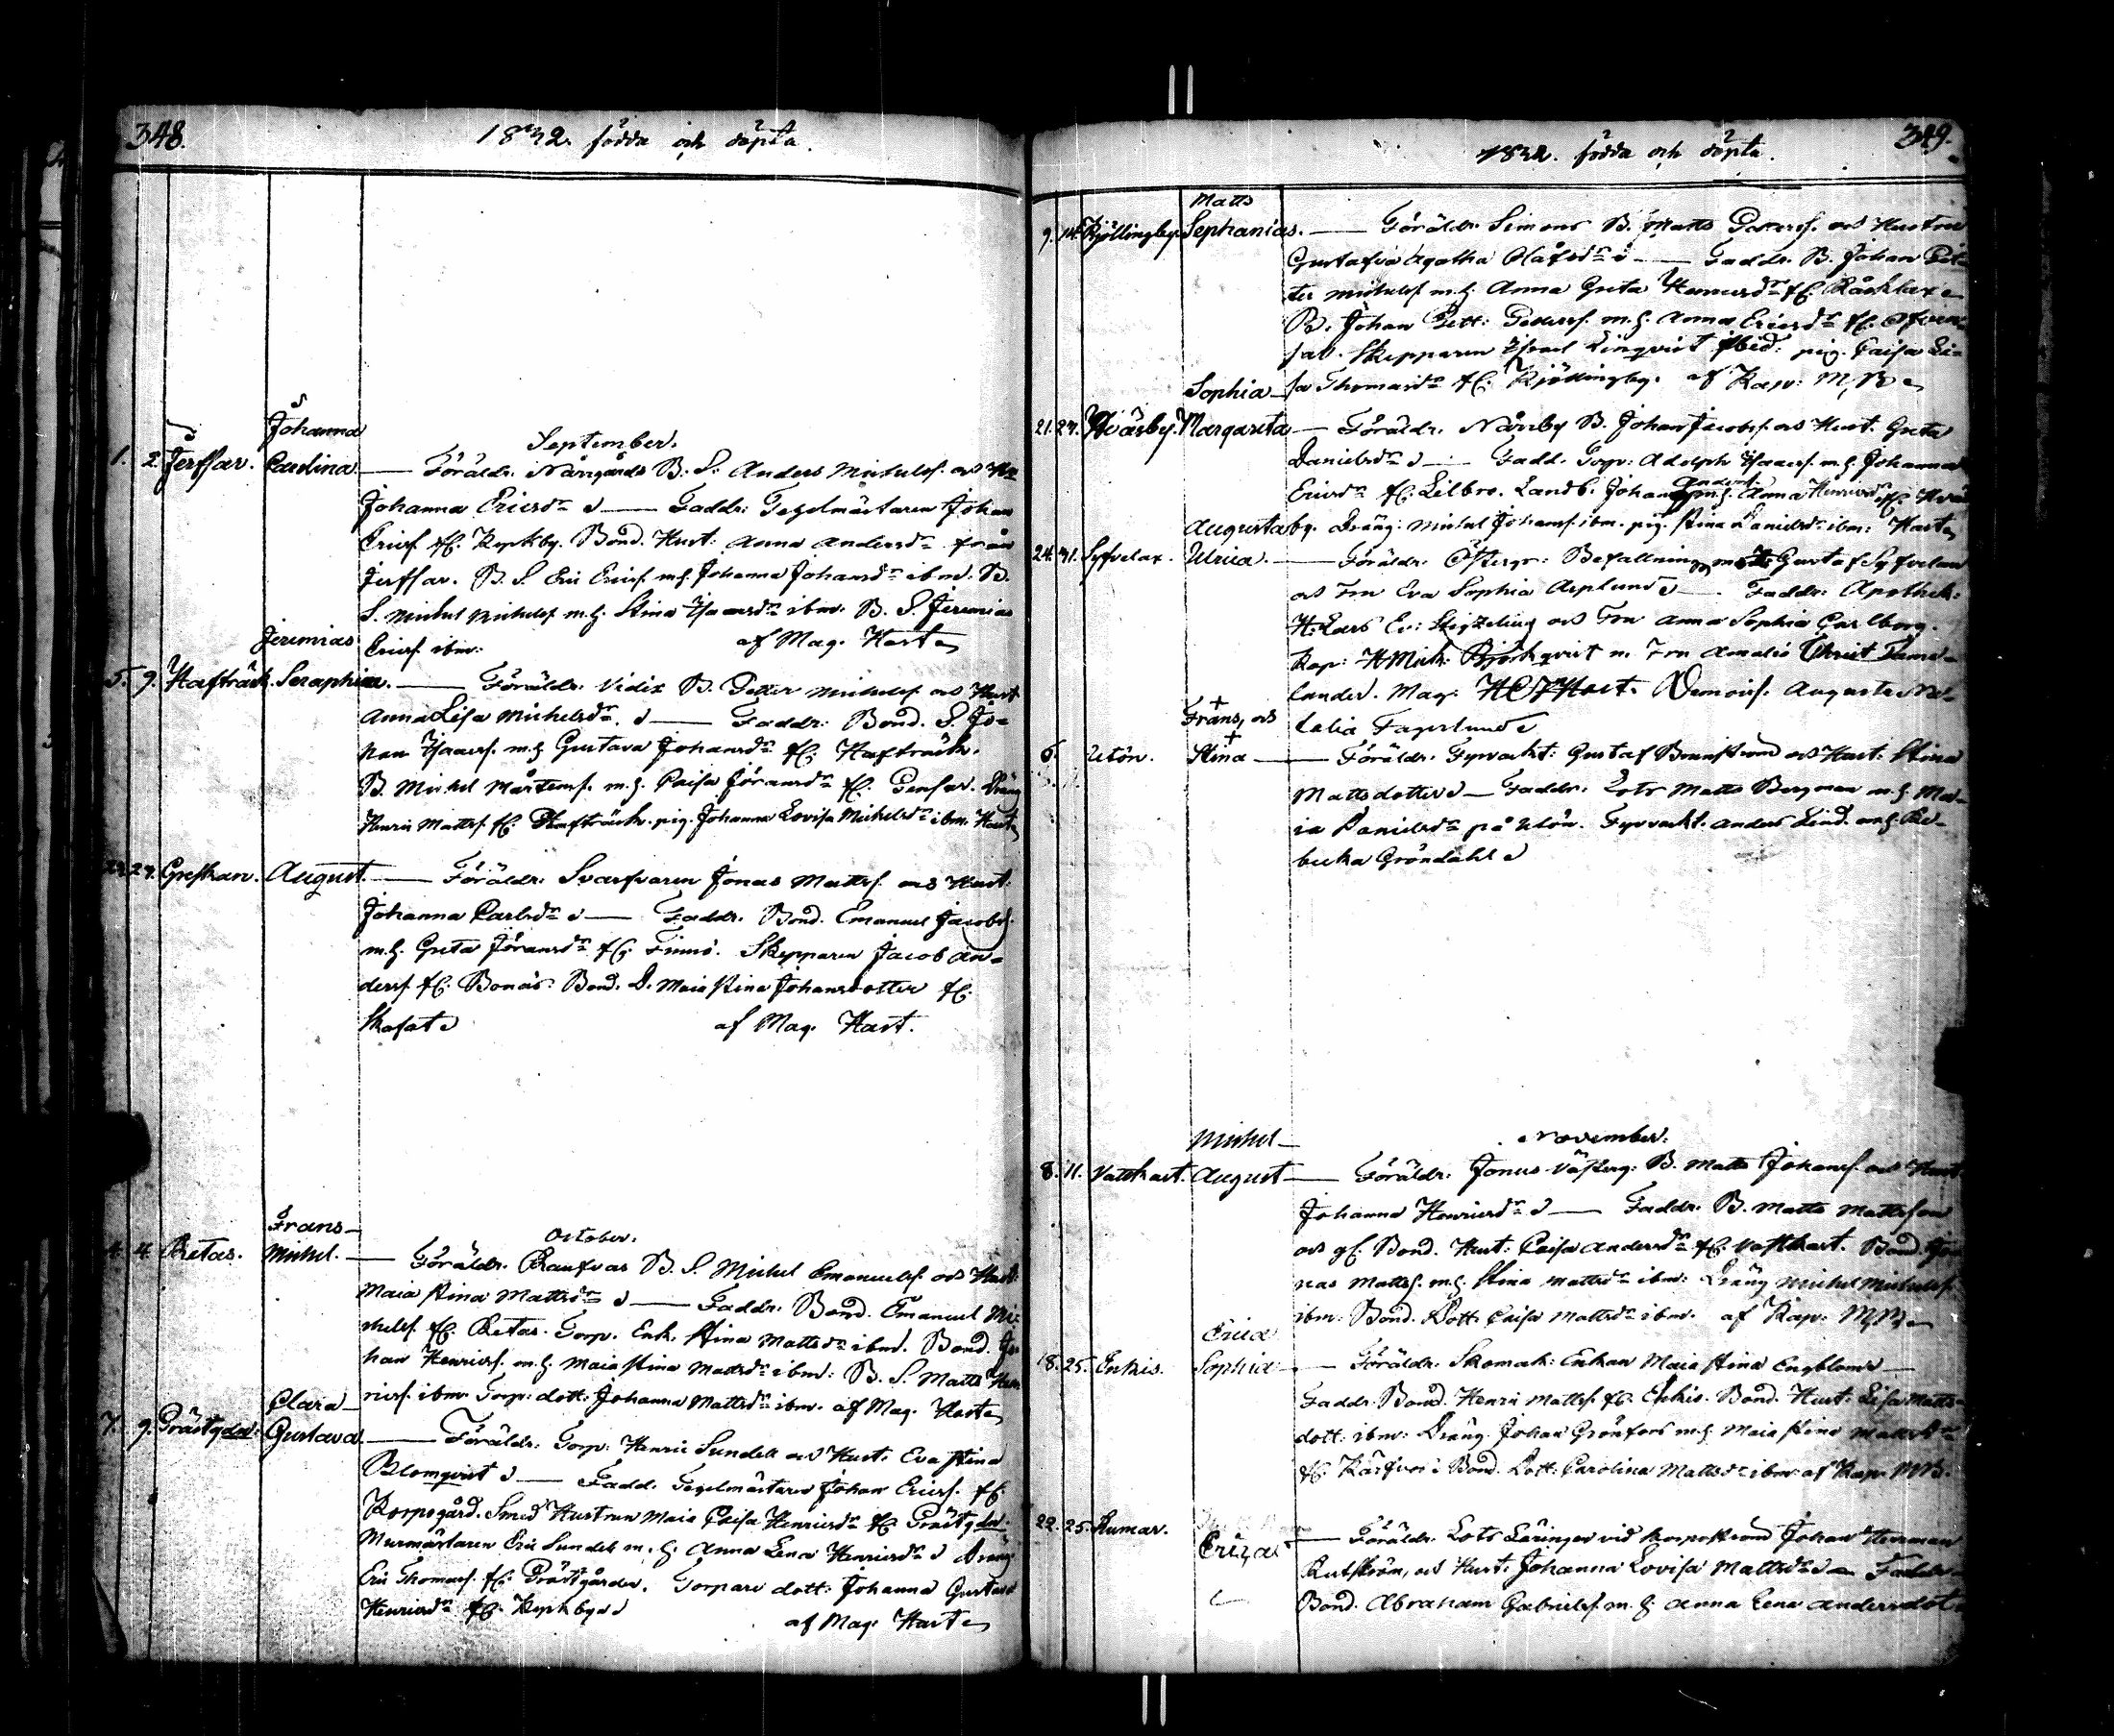 348.
1832. födda och döpta.
Johanna
September.
1. 2. Jerssar. Carolina — Föräldr. Nårrgårds B. S. Anders Michelss. och H
Johanna Ericsdr — Faddr: Tegelmästaren Johan
Ericss. fr. Kyrkby. Bond. Hust: Anna Andersdr från
Jerssar. B. S. Eric Ericss. m.h. Johanna Johansdr ibm. B.
S. Michel Michelss. m.h. Stina Isacsdr ibm. B. S. Jeremias
Jeremias Ericss. ibm: af Mag. Hast
5. 9. Hafträsk. Seraphim. — Föräldr. Vidix B. Petter Michelss. och Hust
Anna Lisa Michelsdr. — Faddr: Bond. S. Jo-
han Isacss. m.h. Gustava Johansdr fr. Hafträsk.
B. Michel Mårtenss. m.h. Caisa Jöransdr fr. Gensar. Dräng
Henric Mattss. fr. Hafträsk. pig. Johanna Lovisa Michelsdr ibm. Hast
27. Grskan. August. — Föräldr. Svarfvaren Jonas Mattss. och Hust.
Johanna Carlsdr — Faddr. Bond. Emanuel Jacobss.
m.h. Greta Jöransdr fr. Finnö. Skepparen Jacob An-
derss. fr. Bonäs. Bond. D. Maia Stina Johansdotter fr.
Skafat af Mag. Hast.
Frans
October.
4. 4. Retas. Michel. — Föräldr. Raufvas B. S. Michel Emanuelss. och Hust
Maia Stina Mattsdr — Faddr. Bond. Emanuel Mi-
chelss. fr. Retas. Torp. Enk. Stina Mattsdr ibm. Bond. Jo
han Henricss. m.h. Maia Stina Mattsdr ibm: B. S. Matts Hen
ricss. ibm. Torp: dott: Johanna Mattsdr ibm. af Mag. Hast
Clara
7. 9. Prästgdn: Gustava — Föräldr: Torp: Henric Sundell och Hust. Eva Stina
Blomqvist — Fadd. Tegelmästaren Johan Ericss. fr.
Korpogård. Smed Hustrun Maia Caisa Henricsdr fr Prästgdn.
Murmästaren Eric Sundell m. h. Anna Lena Henricsdr Dräng
Eric Thomass. fr. Prästgården. Torpare dott: Johanna Gustava
Henricsdr fr. Kyrkby
af Mag. Hast
349.
1832. födda och döpta.
Matts
9. 14. Kjöllingby. Sephanias. — Föräldr. Simons B. Matts Peterss. och Hustru
Gustafva Agatha Olafsdr — Faddr. B. Johan Pet-
ter Michelss. m.h. Anna Greta Hermansdr fr.
B. Johan Pett: Peterss. m.h. Anna Ericsdr fr.
Skepparen Israel Linqvist ibid: pig. Caisa Li-
Sophia sa Thomasdr fr. Kjöllingby. af Kap: M. B
21. 27. Margareta — Föräldr. Nårrby B. Johan Jacobss. och Hust. Greta
Danielsdr — Fadd. Torp: Adolph Isacss. m.h. Johanna
Ericsdr fr. Lilbro. Landb. Johan Anderss. m.h. Anna Henricsdr fr.
Augusta by. Dräng: Michel Johanss. ibm. pig. Stina Danielsdr ibm: Hast
24. 31. Syfvelax. Ulrica. — Föräldr. Befallningsm. Gustaf Syfvelax
och Fru Eva Sophia Asplund — Faddr. Apothek:
H. Lars Er: och Fru Anna Sophia Carlborg.
Kap: H. Mich: Björkqvist m. Fru Amalie Christ Tame-
lander. Mag. H. Hast. Demois. Augusta Na-
Frans, och talia Fagerlund
6. Utön. Stina — Föräldr. Fyrvakt: Gustaf Brunström och Hust. Stina
Mattsdotter — Faddr. Lots Matts Bergman m.h. Ma-
ia Danielsdr på Utön. Fyrvakt. Anders Lind. m.h. Re-
becka Gröndahl
Michel
November.
8. 11. Vattkast. August — Föräldr. Jonus Västerg: B. Matts Johanss. och Hust
Johanna Henricsdr — Faddr. B. Matts Mattsson
och gl. Bond. Hust: Caisa Andersdr fr. Vattkast. Bond. Jo
nas Mattss. m.h. Stina Mattsdr ibm: Dräng Michel Michelss.
ibm: Bond. Dott. Caisa Mattsdr ibm. af Kap: M. B
Erica
18. 25. Enkis. Sophia — Föräldr. Skomak: Enkan Maia Stina Engblom
Faddr. Bond. Henric Mattss. fr. Enkis. Bond. Hust: Lisa Matts-
dott: ibm: Dräng Johan Grönfors m.h. Maia Stina Mattsdr
fr. Bond. Dott: Carolina Mattsdr ibm. af Kap. M.B.
22. 25. Rumar. Erica — Föräldr. Lots Läringen vid Korpoström Johan Herman
och Hust: Johanna Lovisa Mattsdr — Faddr
Bond. Abraham Gabrielss. m. h. Anna Lena Andersdot